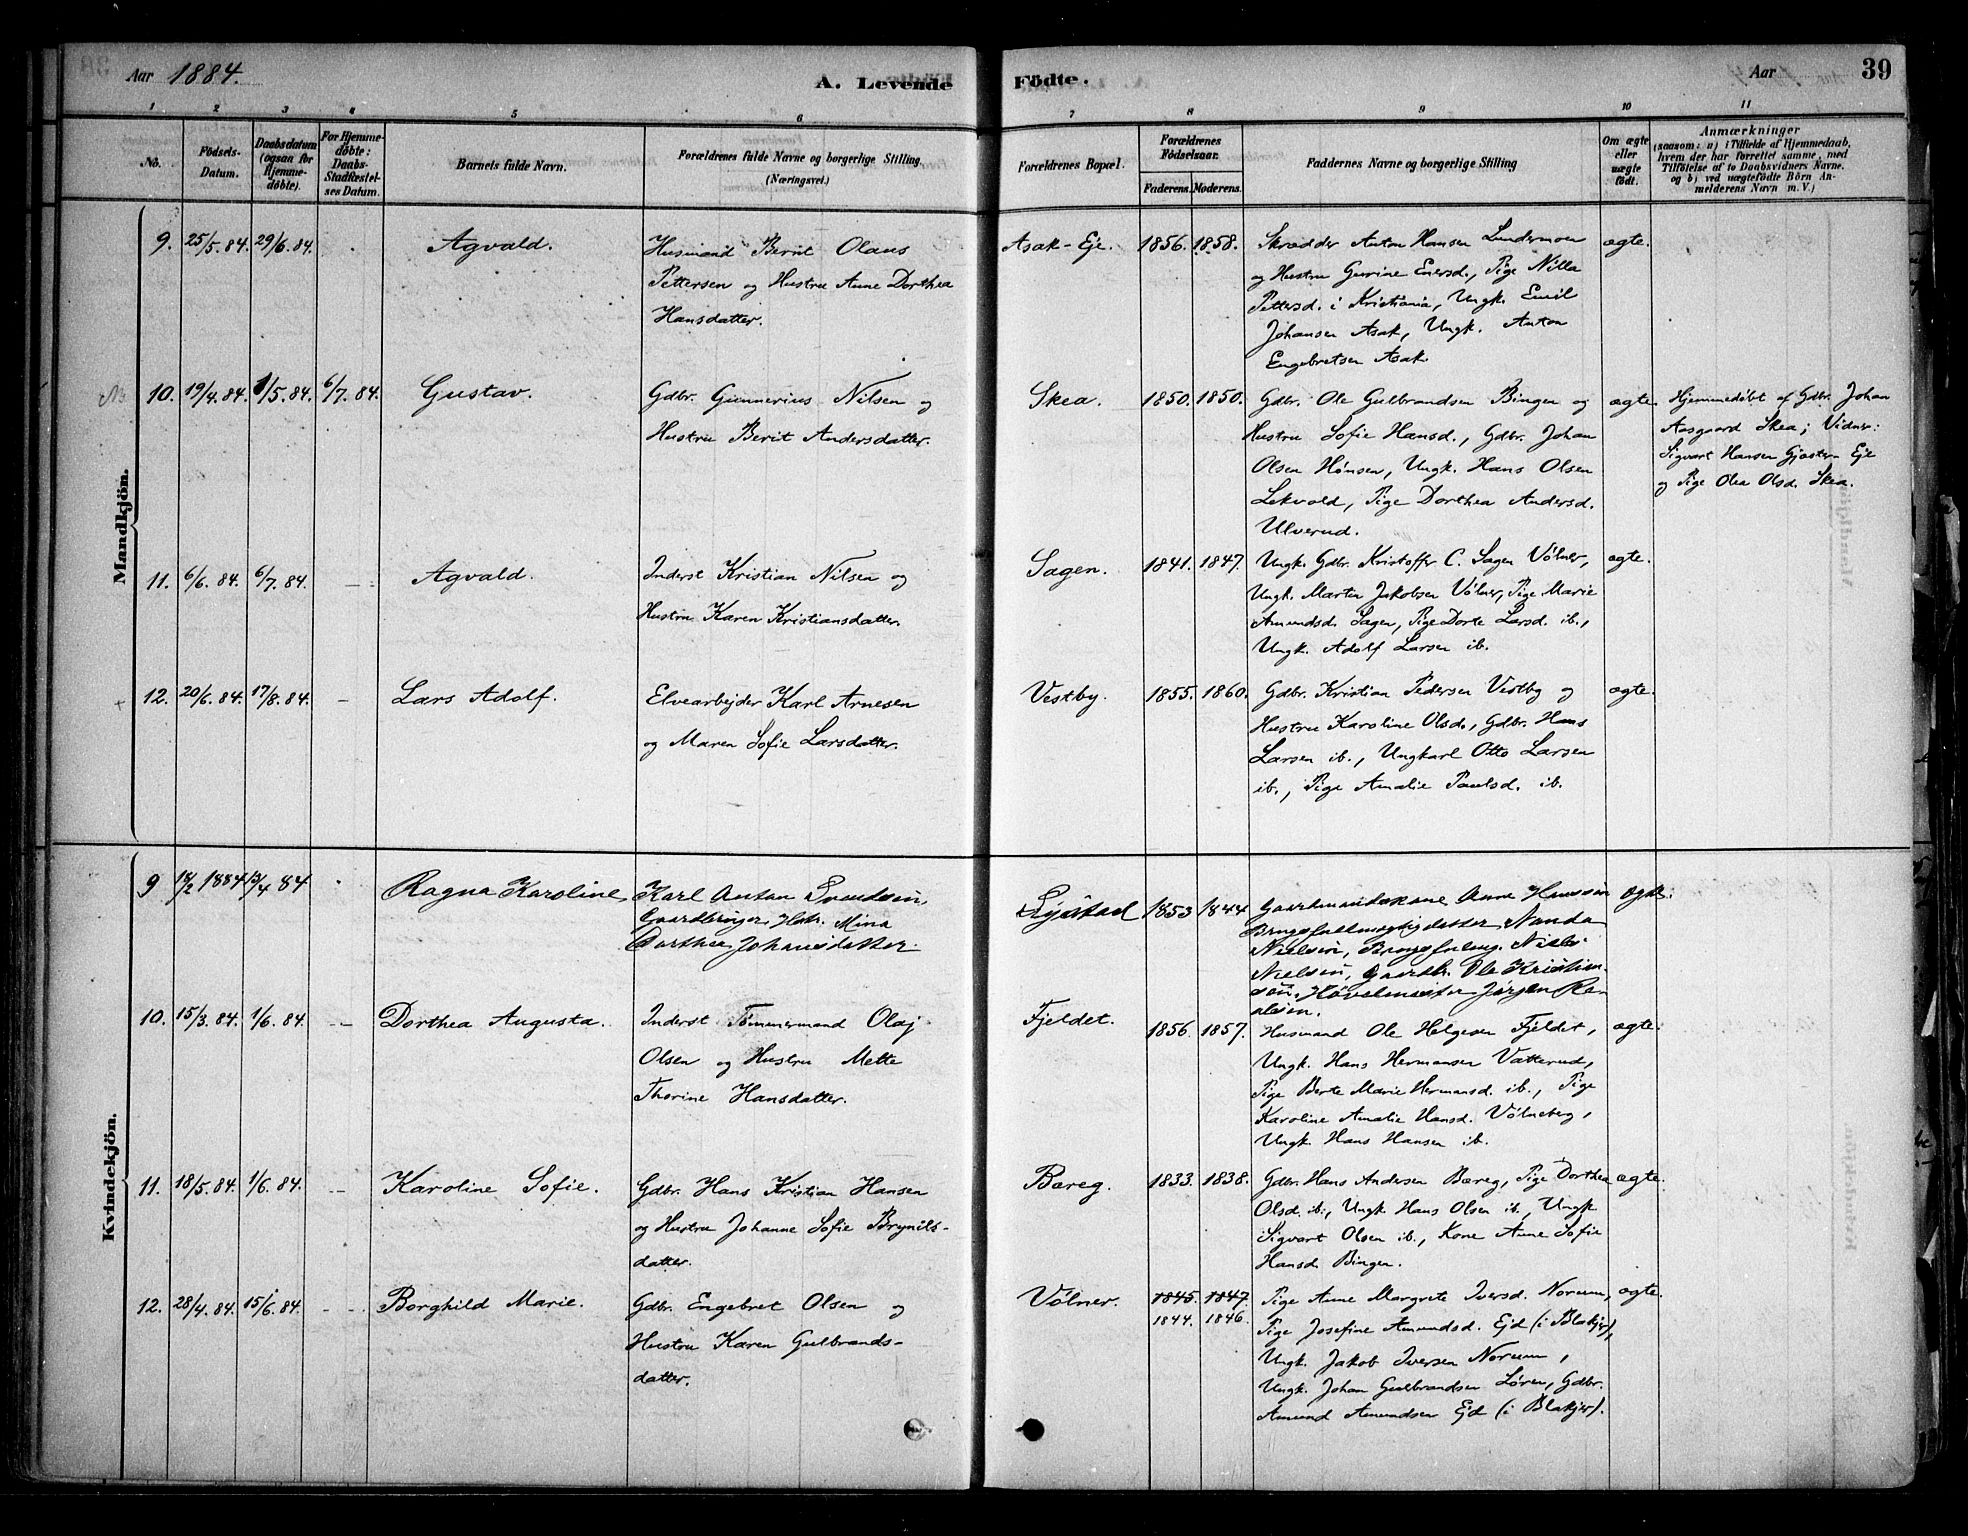 Aar 1884.
A. Levende Födte.
Aar
39
1 2 3 4 5 6 7 8 9 10 11
No.
Födsels-Datum.
Daabsdatum (ogsaa for Hjemme-döbte).
For Hjemme-döbte: Daabs-Stadfæstel-ses Datum.
Barnets fulde Navn.
Forældrenes fulde Navne og borgerlige Stilling.
(Næringsvei.)
Forældrenes Bopæl.
Forældrenes Födselsaar.
Faderens. Moderens.
Faddernes Navne og borgerlige Stilling
Om ægte eller uægte födt.
Anmærkninger
(saasom: a) i Tilfælde af Hjemmedaab,
hvem der har forrettet samme, med
Tilföielse af to Daabsvidners Navne,
og b) ved uægtefödte Börn An-
melderens Navn m. V.)
Mandkjön.
9. 25/5. 84. 29/6. 84. Agvald.
Husmand Bernt Olaus
Pettersen og Hustru Anne Dorthea
Hansdatter.
Asak-Eje. 1856. 1858.
Skrædder Anton Hansen Lundermoen
og Hustru Gurine Enersd., Pige Nilla
Pettersd. i Kristiania, Ungk. Emil
Johansen Asak, Ungk. Anton
Engebretsen Asak.
ægte.
10. 19/4. 84. 1/5. 84. 6/7. 84. Gustav.
Gdbr. Gunnerius Nilsen og
Hustru Berit Andersdatter.
Skea. 1850. 1850.
Gdbr. Ole Gulbrandsen Bingen og
Hustru Sofie Hansd., Gdbr. Johan
Olsen Hønsen, Ungk. Hans Olsen
Lekvold, Pige Dorthea Andersd.
Ulverud.
ægte.
Hjemmedøbt af Gdbr. Johan
Aasgaard Skea; Vidner:
Sigvart Hansen Gjøster-Eje
og Pige Olea Olsd. Skea.
11. 6/6. 84. 6/7. 84. - Agvald.
Inderst Kristian Nilsen og
Hustru Karen Kristiansdatter.
Sagen. 1841. 1847.
Ungk. Gdbr. Kristoffer C. Sagen Vølner,
Ungk. Martin Jakobsen Vølner, Pige Marie
Amundsd. Sagen, Pige Dorte Larsd. ib.,
Ungk. Adolf Larsen ib.
ægte.
12. 20/6. 84. 17/8. 84. - Lars Adolf.
Elvearbejder Karl Arnesen
og Maren Sofie Larsdatter.
Vestby. 1855. 1860.
Gdbr. Kristian Pedersen Vestby og
Hustru Karoline Olsd., Gdbr. Hans
Larsen ib., Ungkarl Otto Larsen
ib., Pige Amalie Paulsd. ib.
ægte.
Kvindekjön.
9 18/2 1884 13/4 84 Ragna Karoline,
Karl Anton Svendsen,
Gaardbruger, Hstr. Mina
Dorthea Johansdatter.
1853 1844
Gaardmandskone Anne Hanssen
Brugsfuldmægtigdatter Nanda
Nielsen, Brugsfuldmg. Niels
Nielsen, Gaardb. Ole Kristian-
sen, Høvelmester Jørgen
ægte.
10. 15/3. 84. 1/6. 84. -- Dorthea Augusta.
Inderst Tømmermand Olaj
Olsen og Hustru Mette
Thorine Hansdatter.
Fjeldet. 1856. 1857.
Husmand Ole Helgesen Fjeldet,
Ungk. Hans Hermansen Vatterud,
Pige Berte Marie Hermansd. ib., Pige
Karoline Amalie Hansd. Vølneberg,
Ungk. Hans Hansen ib.
ægte.
11. 18/5. 84. 1/6. 84. -- Karoline Sofie.
Gdbr. Hans Kristian Hansen
og Hustru Johanne Sofie Brynils-
datter.
Bæreg. 1833. 1838.
Gdbr. Hans Andersen Bæreg, Pige Dorthea
Olsd. ib., Ungk Hans Olsen ib., Ungk
Sigvart Olsen ib., Kone Anne Sofie
Hansd. Bingen.
ægte.
12. 28/4. 84. 15/6. 84. -- Borghild Marie.
Gdbr. Engebret Olsen og
Hustru Karen Gulbrands-
datter.
Vølner. 1845. 1847.
1844. 1846.
Pige Anne Margrete Iversd. Norum,
Pige Josefine Amundsd. Ejd (i Blakjer),
Ungk. Jakob Iversen Norum,
Ungk. Johan Gulbrandsen Løren, Gdbr.
Amund Amundsen Ejd (i Blakjer).
ægte.